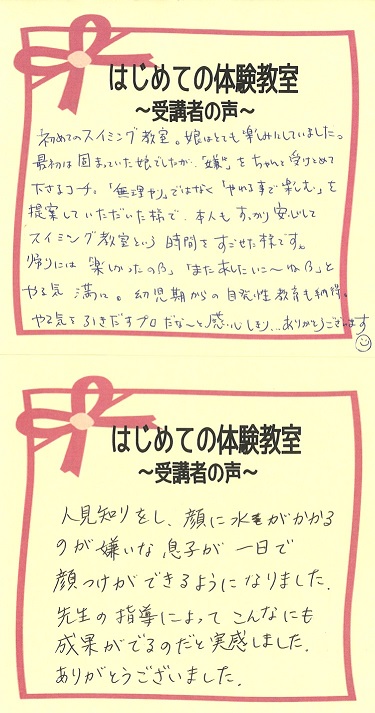 はじめての体験教室
～受講者の声～
初めてのスイミング教室。娘はとても楽しみにしていました。
最初は固まっていた娘でしたが、「嫌」をちゃんと受けとめて
下さるコーチ。「無理やり」ではなく「やれる事で楽しむ」を
提案していただいた様で、本人もすっかり安心して
スイミング教室という時間をすごせた様です。
帰りには「楽しかったのβ」「またあしたいこ～ねβ」と
やる気満々。幼児期からの自発性教育も納得。
やる気を引きだすプロだな～と感心しきり…ありがとうございます
はじめての体験教室
～受講者の声～
人見知りをし、顔に水がかかる
のが嫌いな息子が一日で
顔つけができるようになりました.
先生の指導によってこんなにも
成果がでるのだと実感しました.
ありがとうございました.